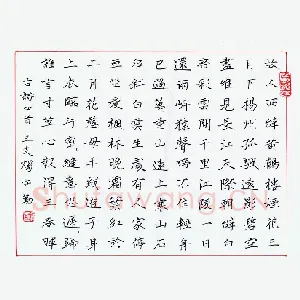 故人西辞黄鶴樓煙花三
月下楊州孤帆遠影碧空
盡唯見長江天際流朝辭白
帝彩雲間千里江陵一日
還兩岸猿聲啼不住輕舟
已過萬重山遠上寒山石
徑斜白雲生處有人家停
車坐愛楓林晚霜葉紅於
二月花慈母手中線遊子身
上衣臨行密密縫意恐遲遲歸
誰言寸草心報得三春暉
古詩
Shufawang.CN